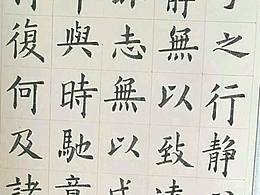 之行靜
靜無以致遠
志無以成
與時馳意
復何及諸